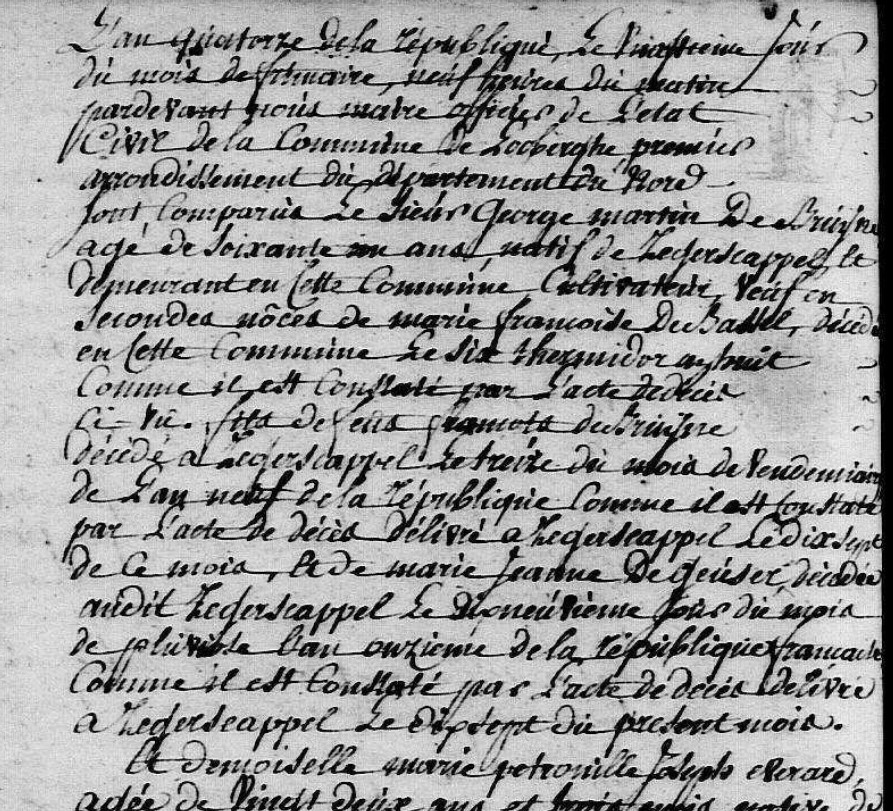 L'an quatorze de la république, Le Vingtieme Jour
du mois de frimaire, neuf heures du matin
pardevant nous maire officier de L'etat
Civil de la Commune de Locberghe premier
arrondissement du département du Nord
Sont Comparus Le Sieur George martin De Bruÿne
agé de Soixante un ans, natif de Zegerscappel, et
demeurant en Cette Commune, Cultivateur, Veuf en
secondes nôces de marie françoise De Bassel, décédé
en Cette Commune Le Six thermidor an huit
Comme il est Constaté par L'acte de décès
Ci-Vu. fils de feus françois de Bruÿne
décédé a Zegerscappel Le treize du mois de Vendemiaire
de L'an neuf de la république Comme il est Constaté
par L'acte de décès délivré a Zegerscappel Le dix sept
de Ce mois, et de marie Jeanne De Geuser, décédée
audit Zegerscappel Le Jour du mois
de pluviose l'an onzieme de la république française
Comme il est Constaté par L'acte de décès délivré
a Zegerscappel Le dix sept du present mois.
Et demoiselle marie petronille Joseph everard,
agée de Vingt deux ans et mois native de